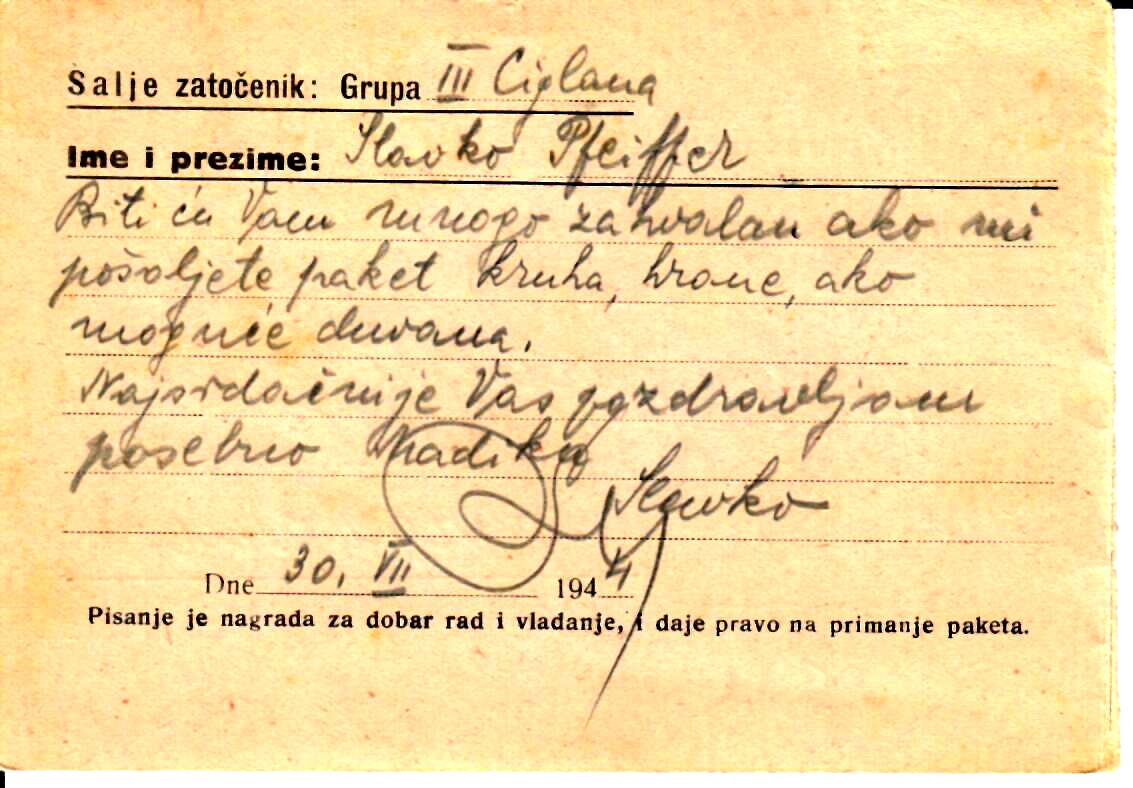 Salje zatočenik: Grupa III Ciglana
Ime i prezime: Slavko Pfeiffer
Biti ću Vam mnogo zahvalan ako mi
pošaljete paket kruha, hrane, ako
moguće duvana.
Najsrdačnije Vas pozdravljam
posebno Nadiku
Slavko
Dne 30. VII 1944
Pisanje je nagrada za dobar rad i vladanje, i daje pravo na primanje paketa.